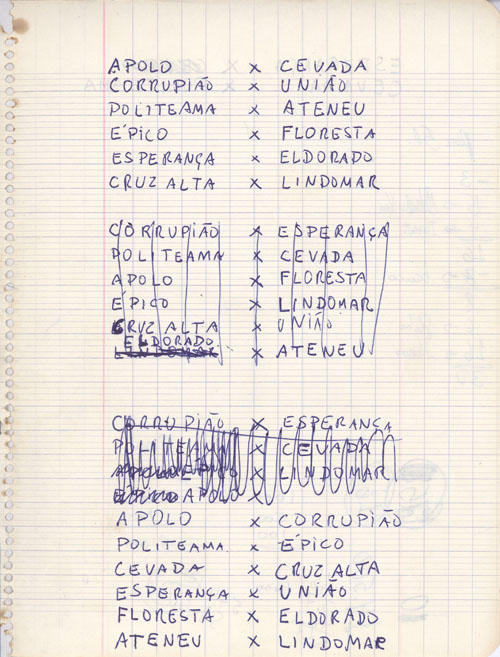 APOLO x CEVADA
CORRUPIÃO x UNIÃO
POLITEAMA x ATENEU
ÉPICO x FLORESTA
ESPERANÇA x ELDORADO
CRUZ ALTA x LINDOMAR
CORRUPIÃO x ESPERANÇA
POLITEAMA x CEVADA
APOLO x FLORESTA
ÉPICO x LINDOMAR
CRUZ ALTA x UNIÃO
ELDORADO
LINDOMAR x ATENEU
CORRUPIÃO x ESPERANÇA
POLITEAMA x CEVADA
x LINDOMAR
APOLO x
APOLO x CORRUPIÃO
POLITEAMA x ÉPICO
CEVADA x CRUZ ALTA
ESPERANÇA x UNIÃO
FLORESTA x ELDORADO
ATENEU x LINDOMAR